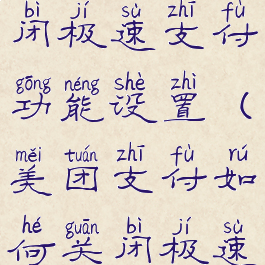 bì jí sù zhī fù
闭极速支付
gōng néng shè zhì
功能设置（
měi tuán zhī fù rú
美团支付如
hé guān bì jí sù
何关闭极速